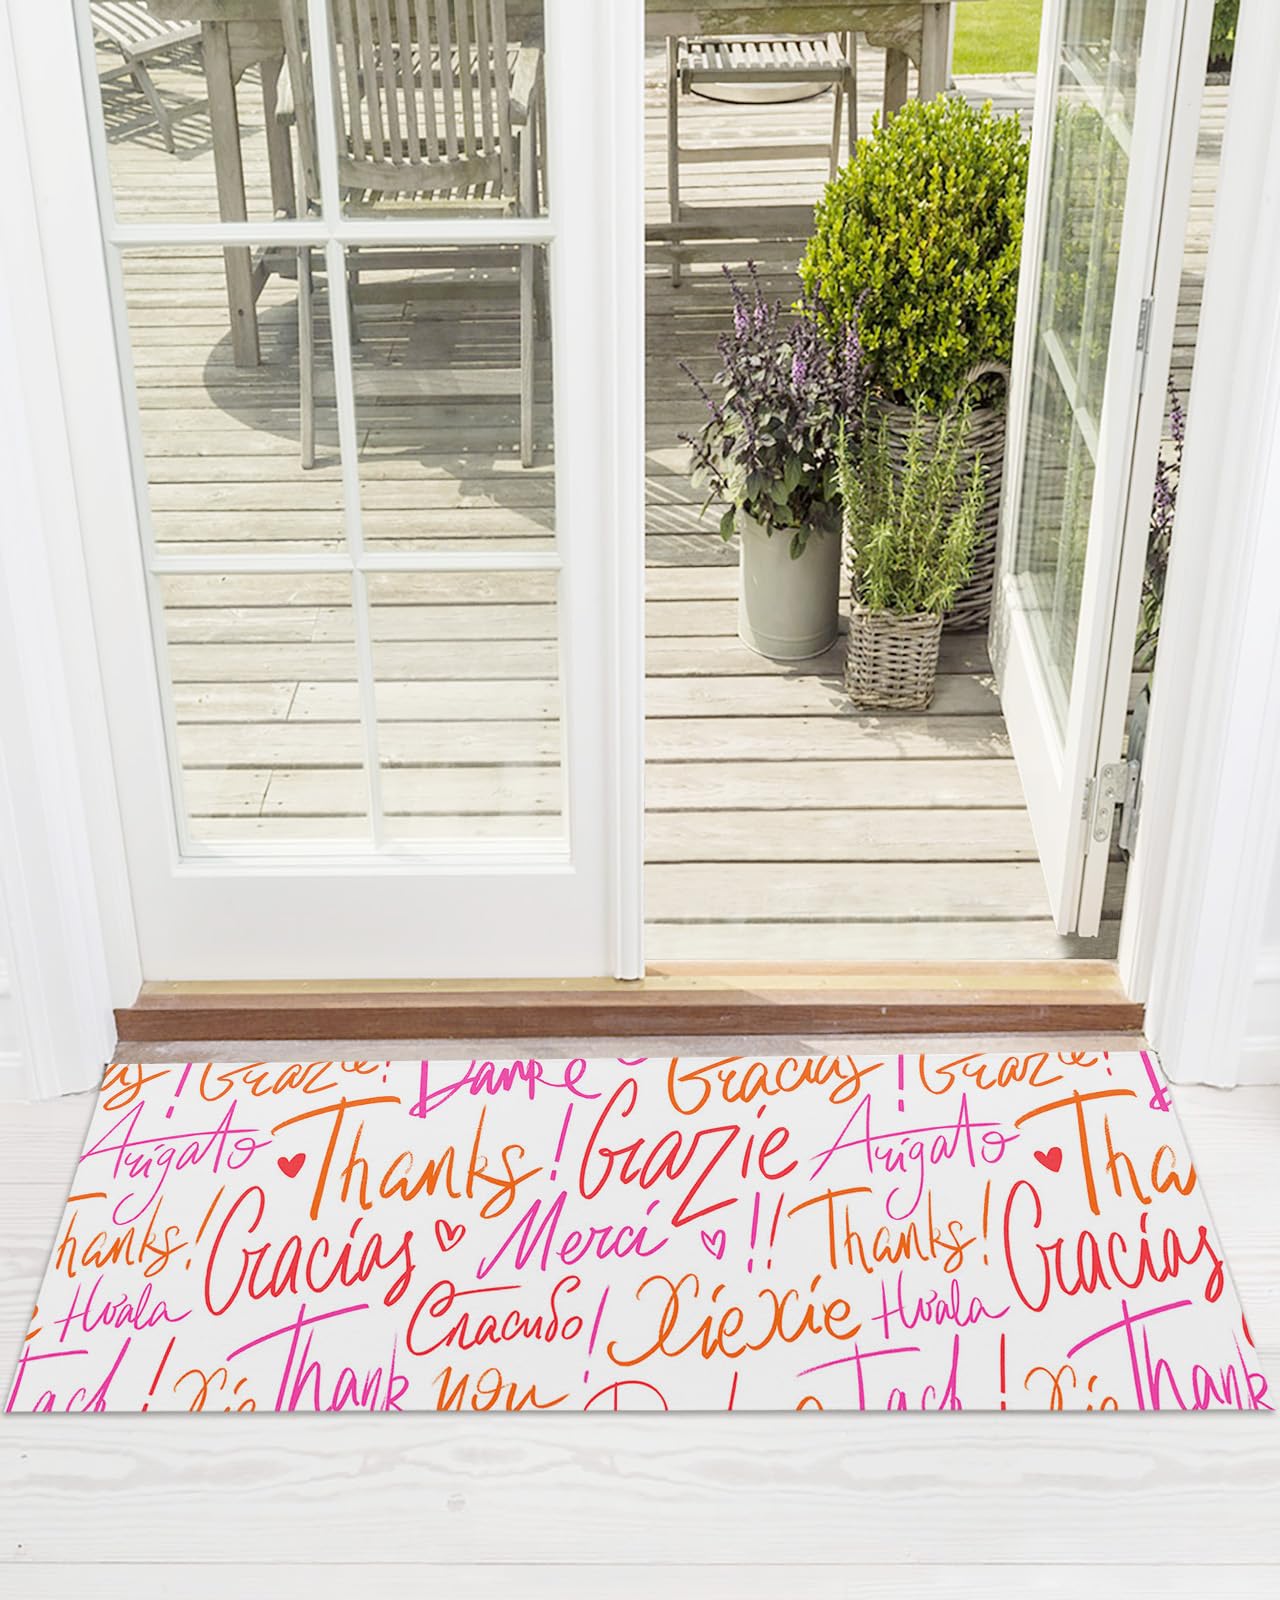 Grazie! Danke Gracias! Grazie!
Arigato Thanks! Grazie Arigato Tha
hanks! Gracias Merci !! Thanks! Gracias
Hvala Спасибо! XieXie Hvala
Tack! Xie Thank you Tack! Xie Thank